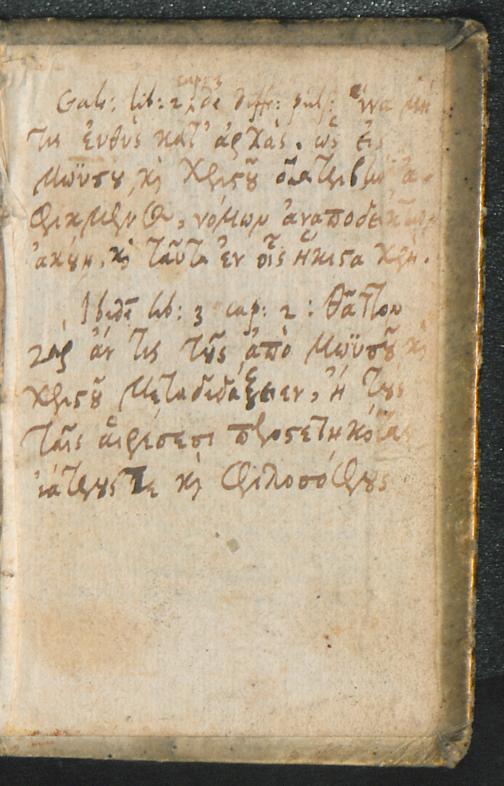 cap: 3
Gale: lib: 2, de diff: puls: ἵνα μή
τις εὐθὺς κατ' ἀρχὰς, ὡς εἰς
Μωϋσοῦ, καὶ Χριστοῦ διατριβὴν ἀ-
φιγμένος, νόμων ἀναποδείκτων
ἀκούῃ, καὶ ταῦτα ἐν οἷς ἥκιστα χρή.
Ibidē lib: 3 cap: 2: θᾶττον
γὰρ ἄν τις τοὺς ἀπὸ Μωϋσοῦ καὶ
Χριστοῦ μεταδιδάξειεν, ἢ τοὺς
ταῖς αἱρέσεσι προστετηκότας
ἰατρούς τε καὶ φιλοσόφους